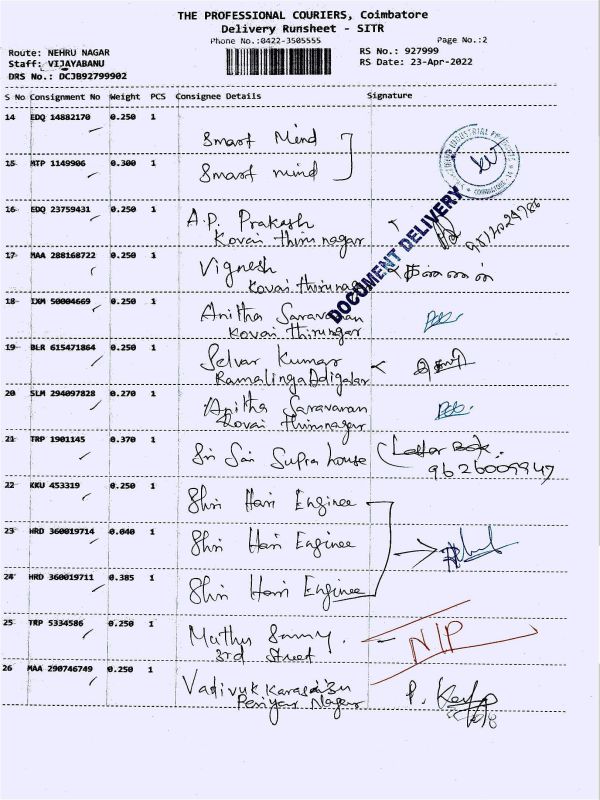 THE PROFESSIONAL COURIERS, Coimbatore
Delivery Runsheet - SITR
Phone No.:0422-3505555
Page No.:2
Route: NEHRU NAGAR
RS No.: 927999
Staff: VIJAYABANU
RS Date: 23-Apr-2022
DRS No.: DCJB92799902
S No Consignment No Weight PCS Consignee Details Signature
14 EDQ 14882170 0.250 1
Smart Mind
15 MTP 1149906 0.300 1
Smart mind
DOCUMENT DELIVERY
16 EDQ 23759431 0.250 1
A.P. Prakash
Kovai thirunagar
17 MAA 288168722 0.250 1
Vignesh
Kovai thirunagar
18 IXM 50004669 0.250 1
Anitha Saravanan
Kovai thirunagar
19 BLR 615471864 0.250 1
Selvar Kumar
Ramalinga Adigalar
20 SLM 294097828 0.270 1
Anitha Saravanan
Kovai thirunagar
21 TRP 1901145 0.370 1
Sri Sai Supra house
22 KKU 453319 0.250 1
Shri Hari Enginee
23 HRD 360019714 0.040 1
Shri Hari Enginee
24 HRD 360019711 0.385 1
Shri Hari Enginee
25 TRP 5334586 0.250 1
Muthu Samy.
3rd Street
N/P
26 MAA 290746749 0.250 1
Periyar Nagar